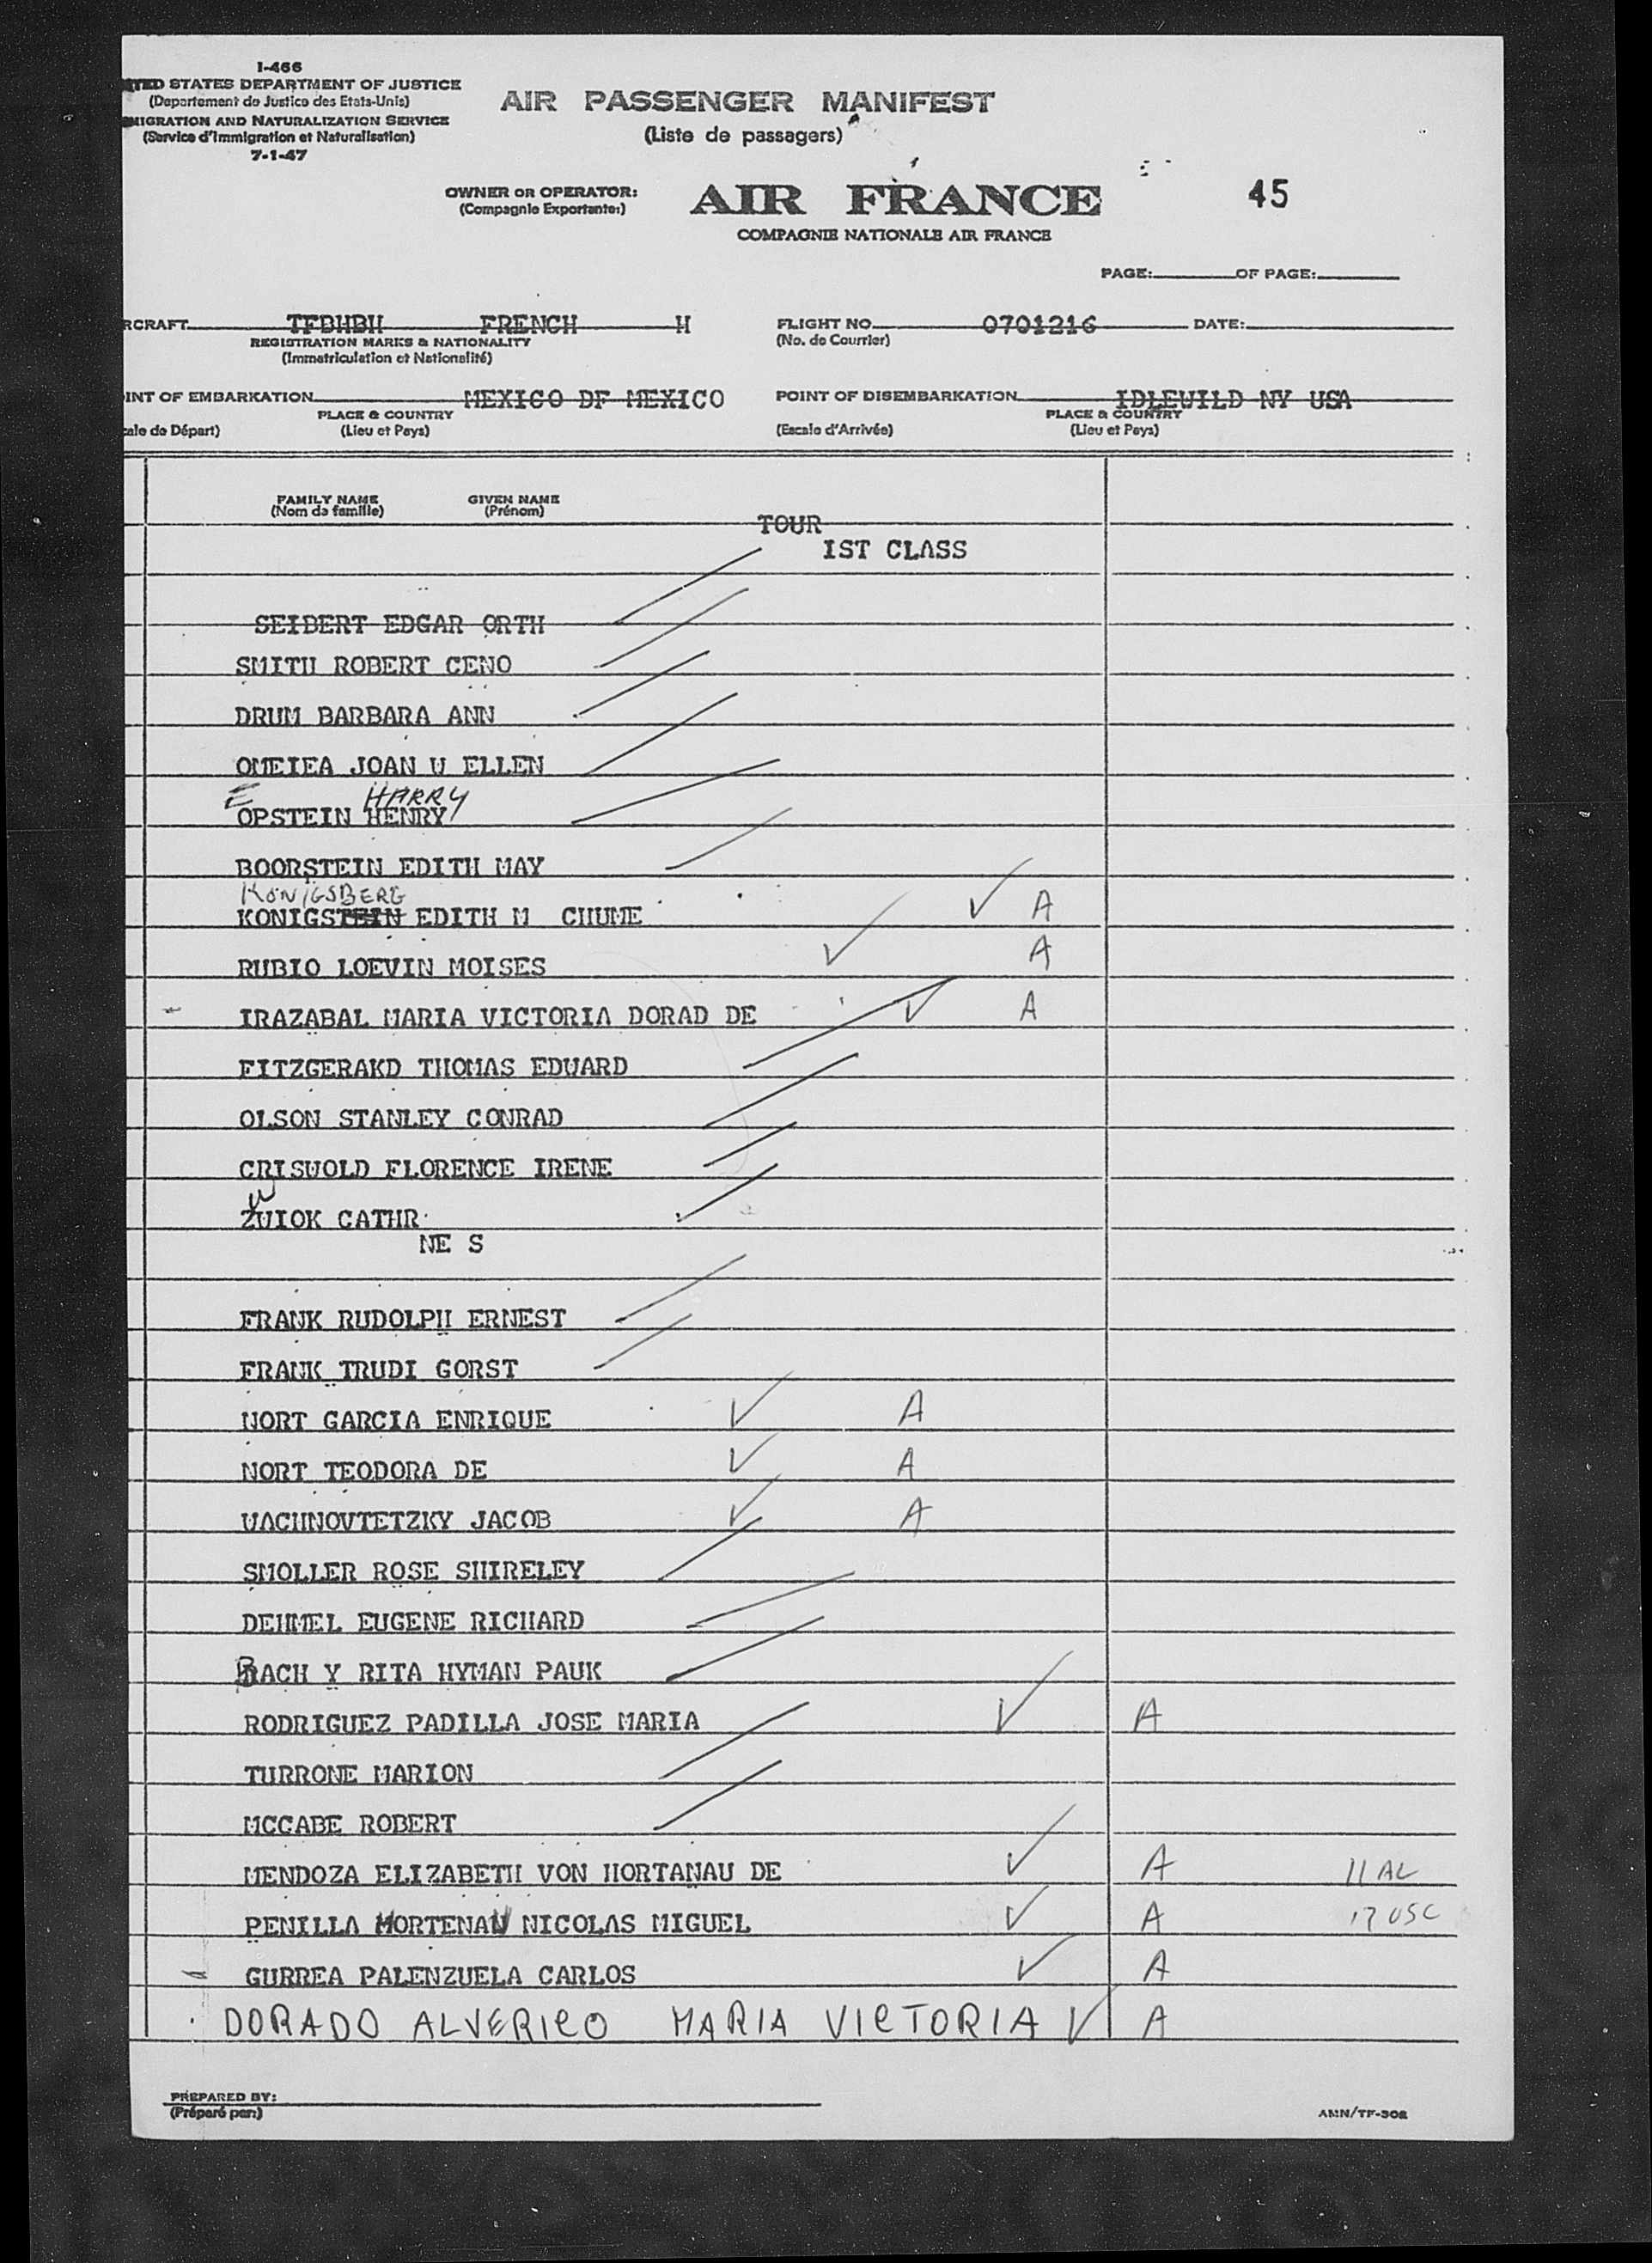 I-466
TED STATES DEPARTMENT OF JUSTICE
(Departement de Justice des Etats-Unis)
MIGRATION AND NATURALIZATION SERVICE
(Service d'Immigration et Naturalisation)
7-1-47
AIR PASSENGER MANIFEST
(Liste de passagers)
OWNER OR OPERATOR:
(Compagnie Exportante:)
AIR FRANCE
COMPAGNIE NATIONALE AIR FRANCE
45
PAGE: OF PAGE:
RCRAFT TFBHBH FRENCH H FLIGHT NO. 0701216 DATE:
REGISTRATION MARKS & NATIONALITY (No. de Courrier)
(Immatriculation et Nationalité)
INT OF EMBARKATION MEXICO DF MEXICO POINT OF DISEMBARKATION IDLEWILD NY USA
PLACE & COUNTRY PLACE & COUNTRY
cale de Départ) (Lieu et Pays) (Escale d'Arrivée) (Lieu et Pays)
FAMILY NAME GIVEN NAME
(Nom de famille) (Prénom)
TOUR
IST CLASS
SEIBERT EDGAR ORTH
SMITH ROBERT CENO
DRUM BARBARA ANN
OMEIEA JOAN W ELLEN
E HARRY
OPSTEIN HENRY
BOORSTEIN EDITH MAY
KONIGSBERG
KONIGSTEIN EDITH M CHUME ✓ A
RUBIO LOEVIN MOISES ✓ A
IRAZABAL MARIA VICTORIA DORAD DE ✓ A
FITZGERAKD THOMAS EDWARD
OLSON STANLEY CONRAD
CRISWOLD FLORENCE IRENE
W
ZWIOK CATHR
NE S
FRANK RUDOLPH ERNEST
FRANK TRUDI GORST
NORT GARCIA ENRIQUE ✓ A
NORT TEODORA DE ✓ A
WACHNOVTETZKY JACOB ✓ A
SMOLLER ROSE SHIRELEY
DEHMEL EUGENE RICHARD
BACH Y RITA HYMAN PAUK
RODRIGUEZ PADILLA JOSE MARIA ✓ A
TURRONE MARION
MCCABE ROBERT
MENDOZA ELIZABETH VON HORTANAU DE ✓ A 11 AL
PENILLA HORTENAU NICOLAS MIGUEL ✓ A 17 USC
GURREA PALENZUELA CARLOS ✓ A
DORADO ALVERICO MARIA VICTORIA ✓ A
PREPARED BY:
(Préparé par:)
AMN/TF-302